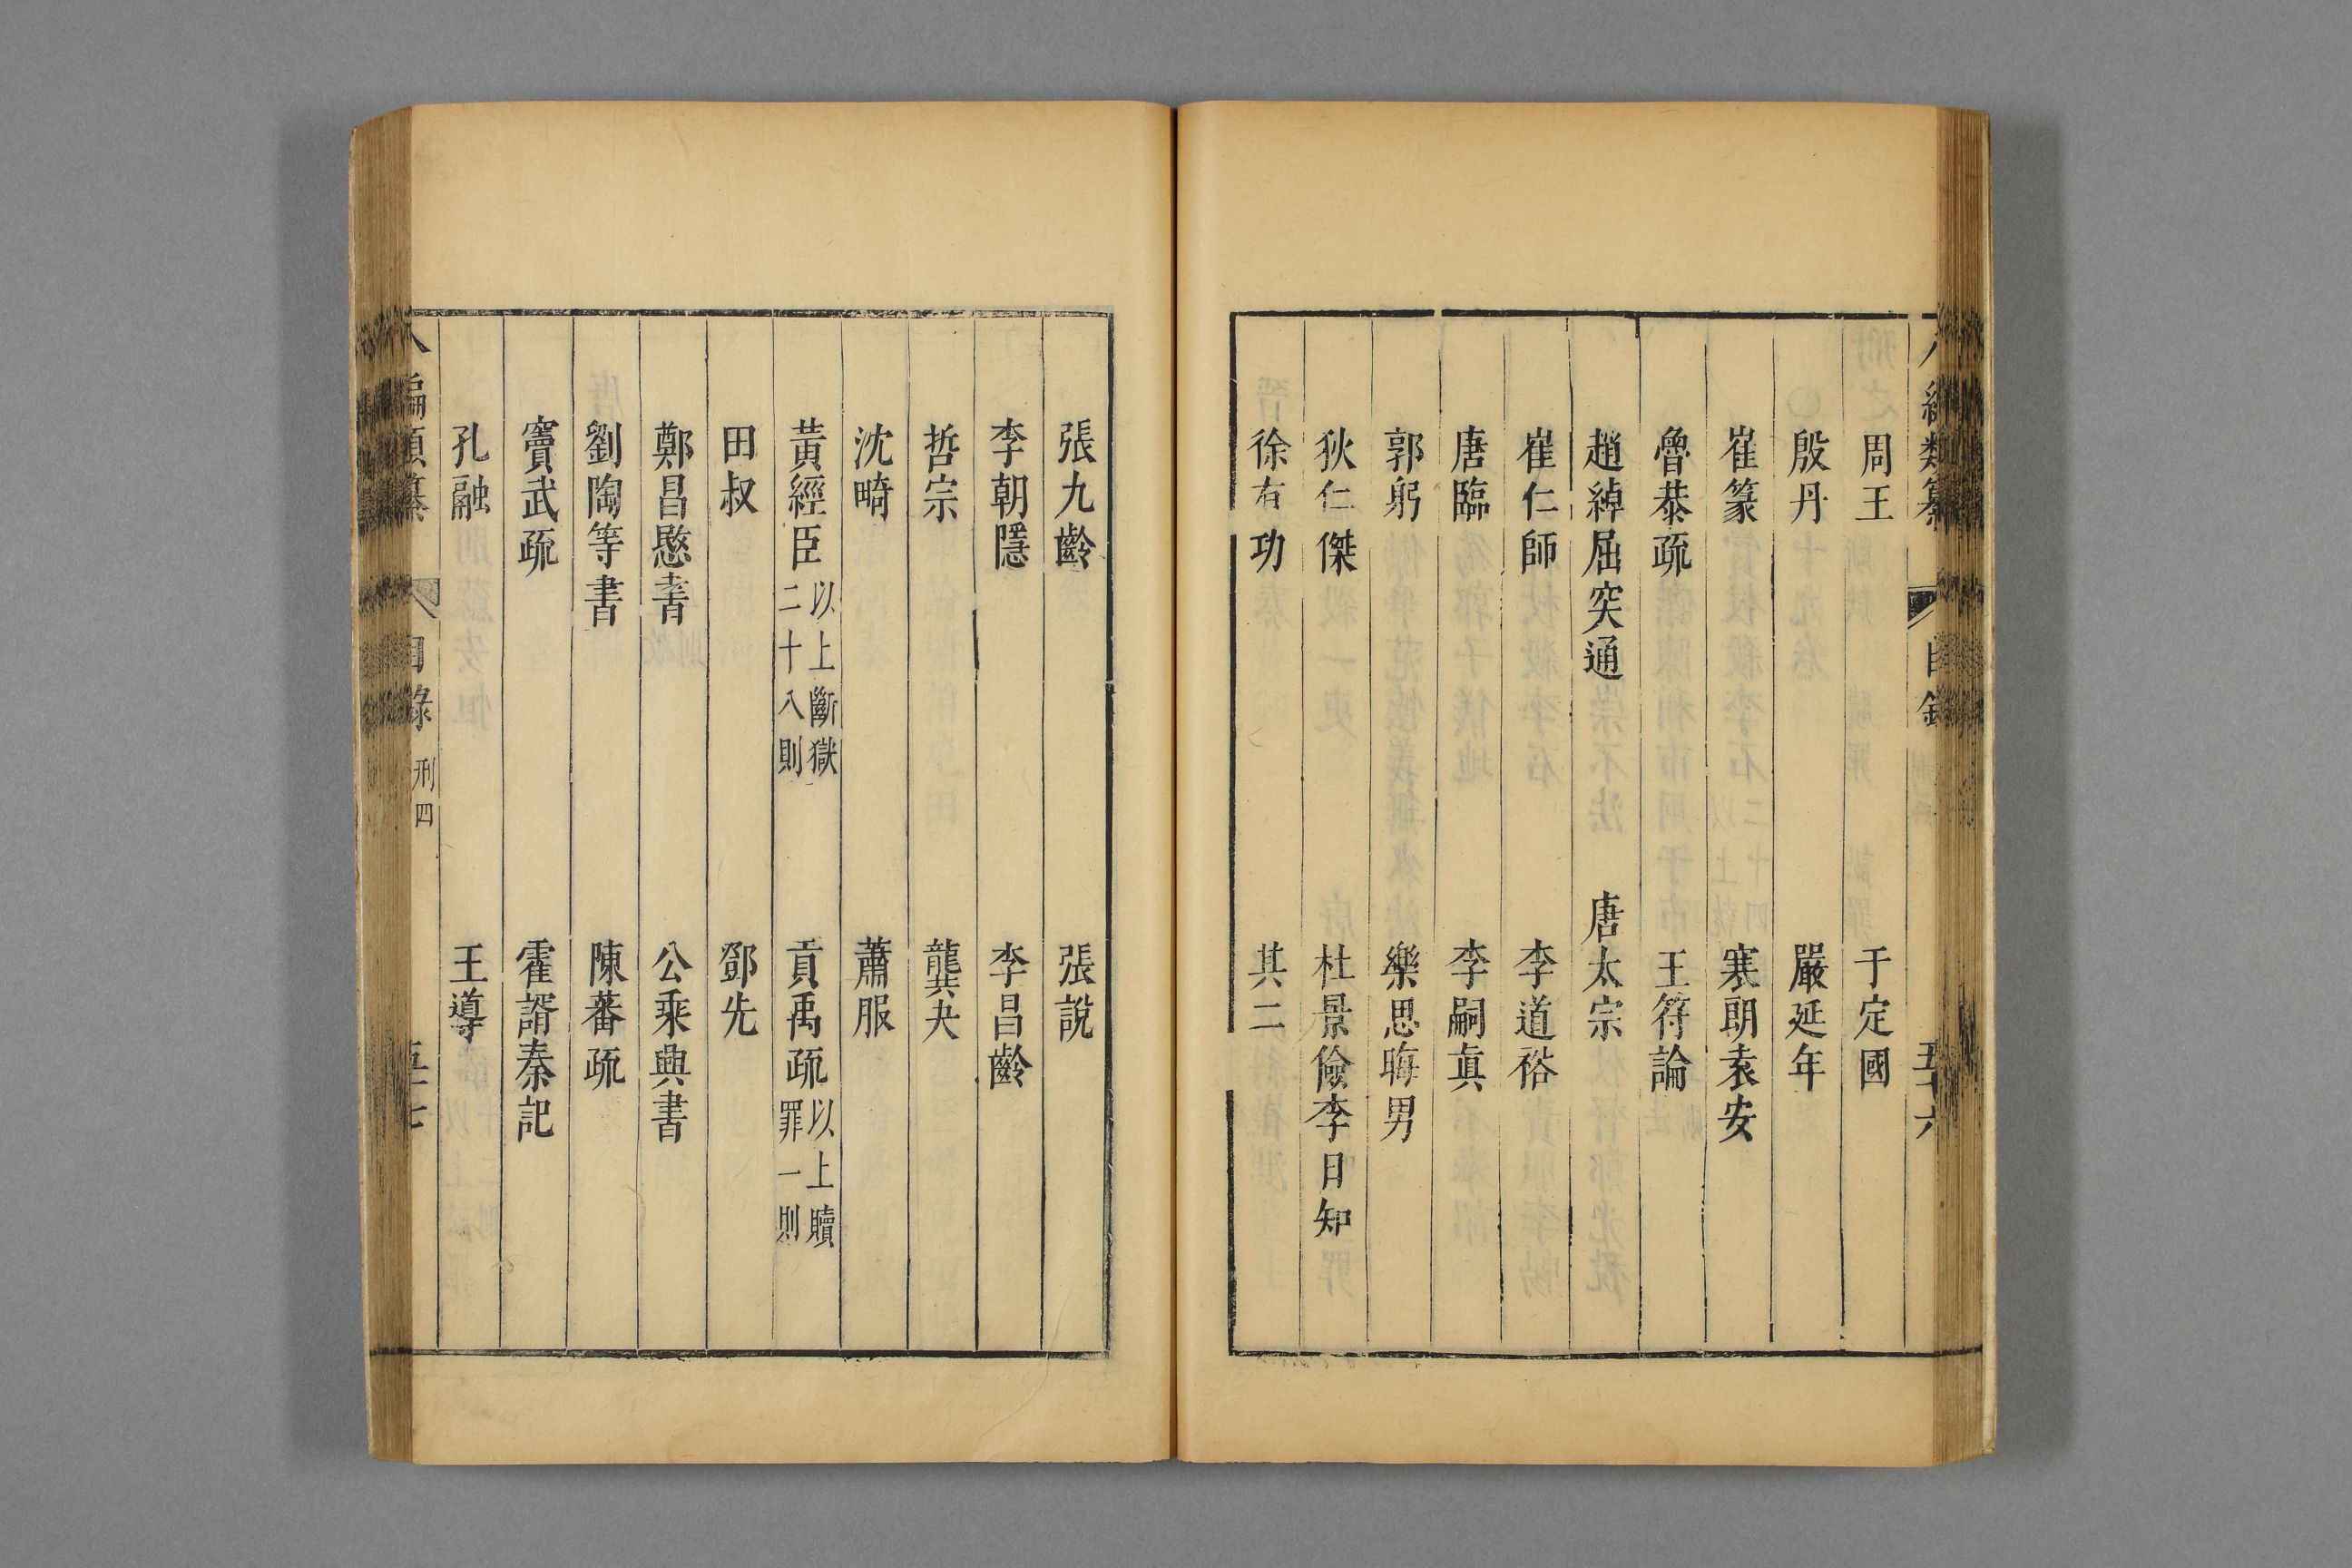 周王 于定國
殷丹 嚴延年
崔篆 寒朗袁安
魯恭疏 王符論
趙綽屈突通 唐太宗
崔仁師 李道裕
唐臨 李嗣真
郭躬 樂思晦男
狄仁傑 杜景儉李日知
徐有功 其二
張九齡 張說
李朝隱 李昌齡
哲宗 龔夬
沈畸 蕭服
黃經臣 以上斷獄二十八則 貢禹疏 以上贖罪一則
田叔 鄧先
鄭昌愍書 公乘興書
劉陶等書 陳蕃疏
竇武疏 霍諝奏記
孔融 王導
編類纂 目錄 刑四